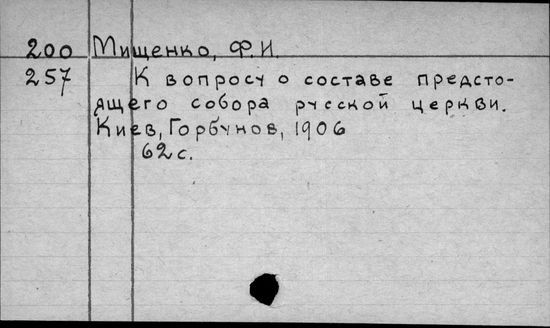 200 Мищенко, Ф.И.
257 К вопросу о составе предсто-
ящего собора русской церкви.
Киев, Горбунов, 1906
62 с.